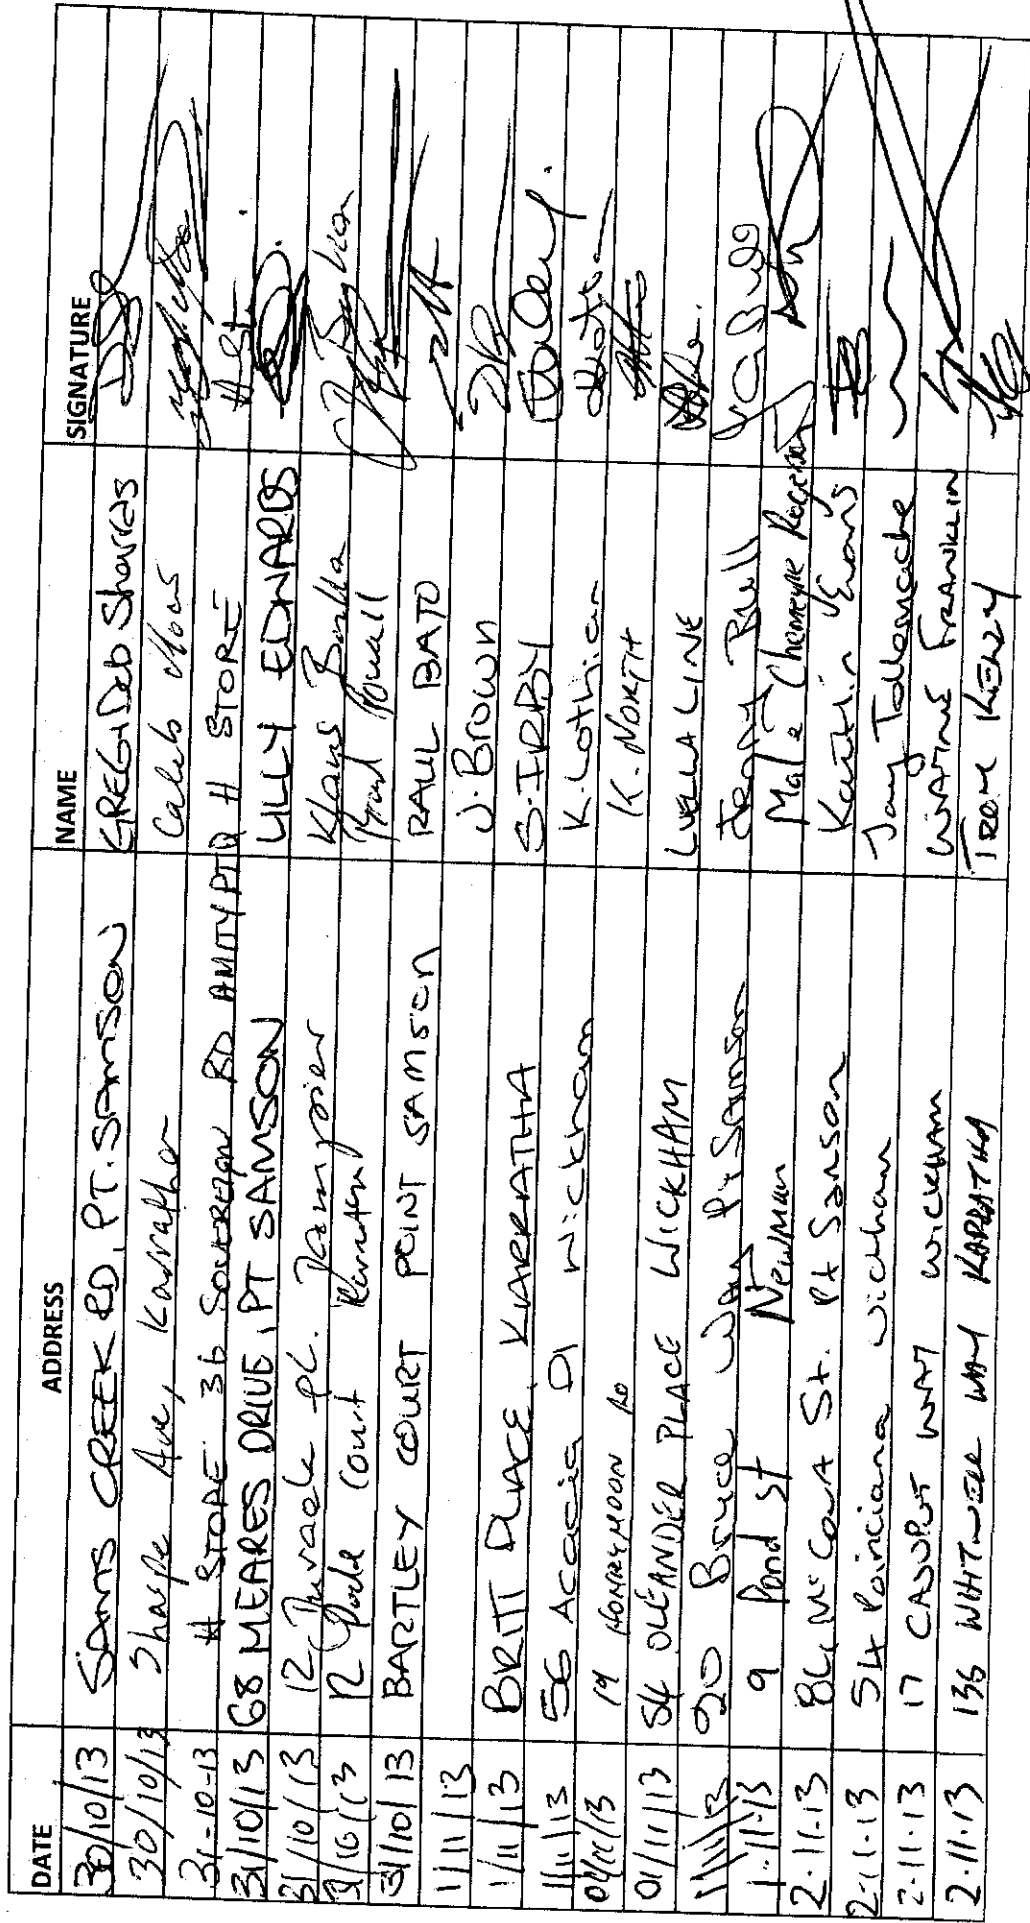 DATE ADDRESS NAME SIGNATURE
30/10/13 SAMS CREEK RD, PT. SAMSON GREG & Deb Sharras
30/10/13 Sharpe Ave, Karratha Caleb
31-10-13 # STORE 36 RD AMITY PT Q # STORE
31/10/13 68 MEARES DRIVE, PT SAMSON LILLY EDWARDS
31/10/13 12 Pl. Dampier Klaus
31/10/13 12 Court Karratha Powell
31/10/13 BARTLEY COURT POINT SAMSON RAUL BATO
1/11/13 J. Brown
1/11/13 BRITT PLACE KARRATHA S. IRBY
1/11/13 56 Acacia Dr Wickham K. Lothian
01/11/13 19 HONEYMOON RD K. NORTH
01/11/13 54 OLEANDER PLACE WICKHAM LUELLA LINE
1/11/13 20 Bruce Way Pt Samson Bull
1-11-13 9 Pond st Newman Mal & Cherreyne Rogers
2-11-13 McCourt St. Pt Samson Kaitlin Evans
2-11-13 54 Poinciana Wickham Jay Tollemache
2-11-13 17 CAJUPUT WAY WICKHAM WAYNE FRANKLIN
2-11-13 136 WHITWELL WAY KARRATHA TROY